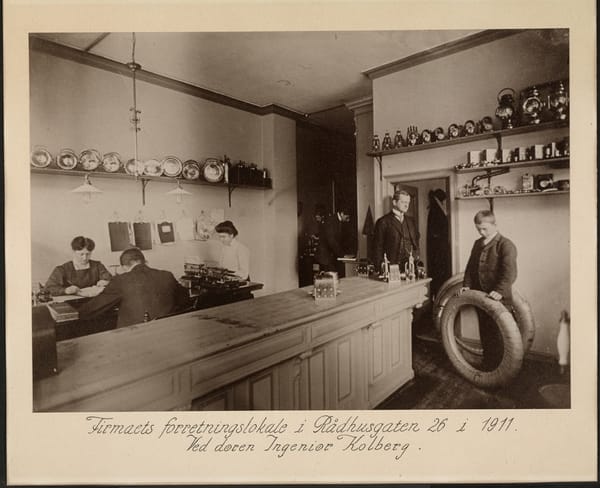 Firmaets forretningslokale i Rådhusgaten 26 i 1911.
Ved døren Ingeniør Kolberg.